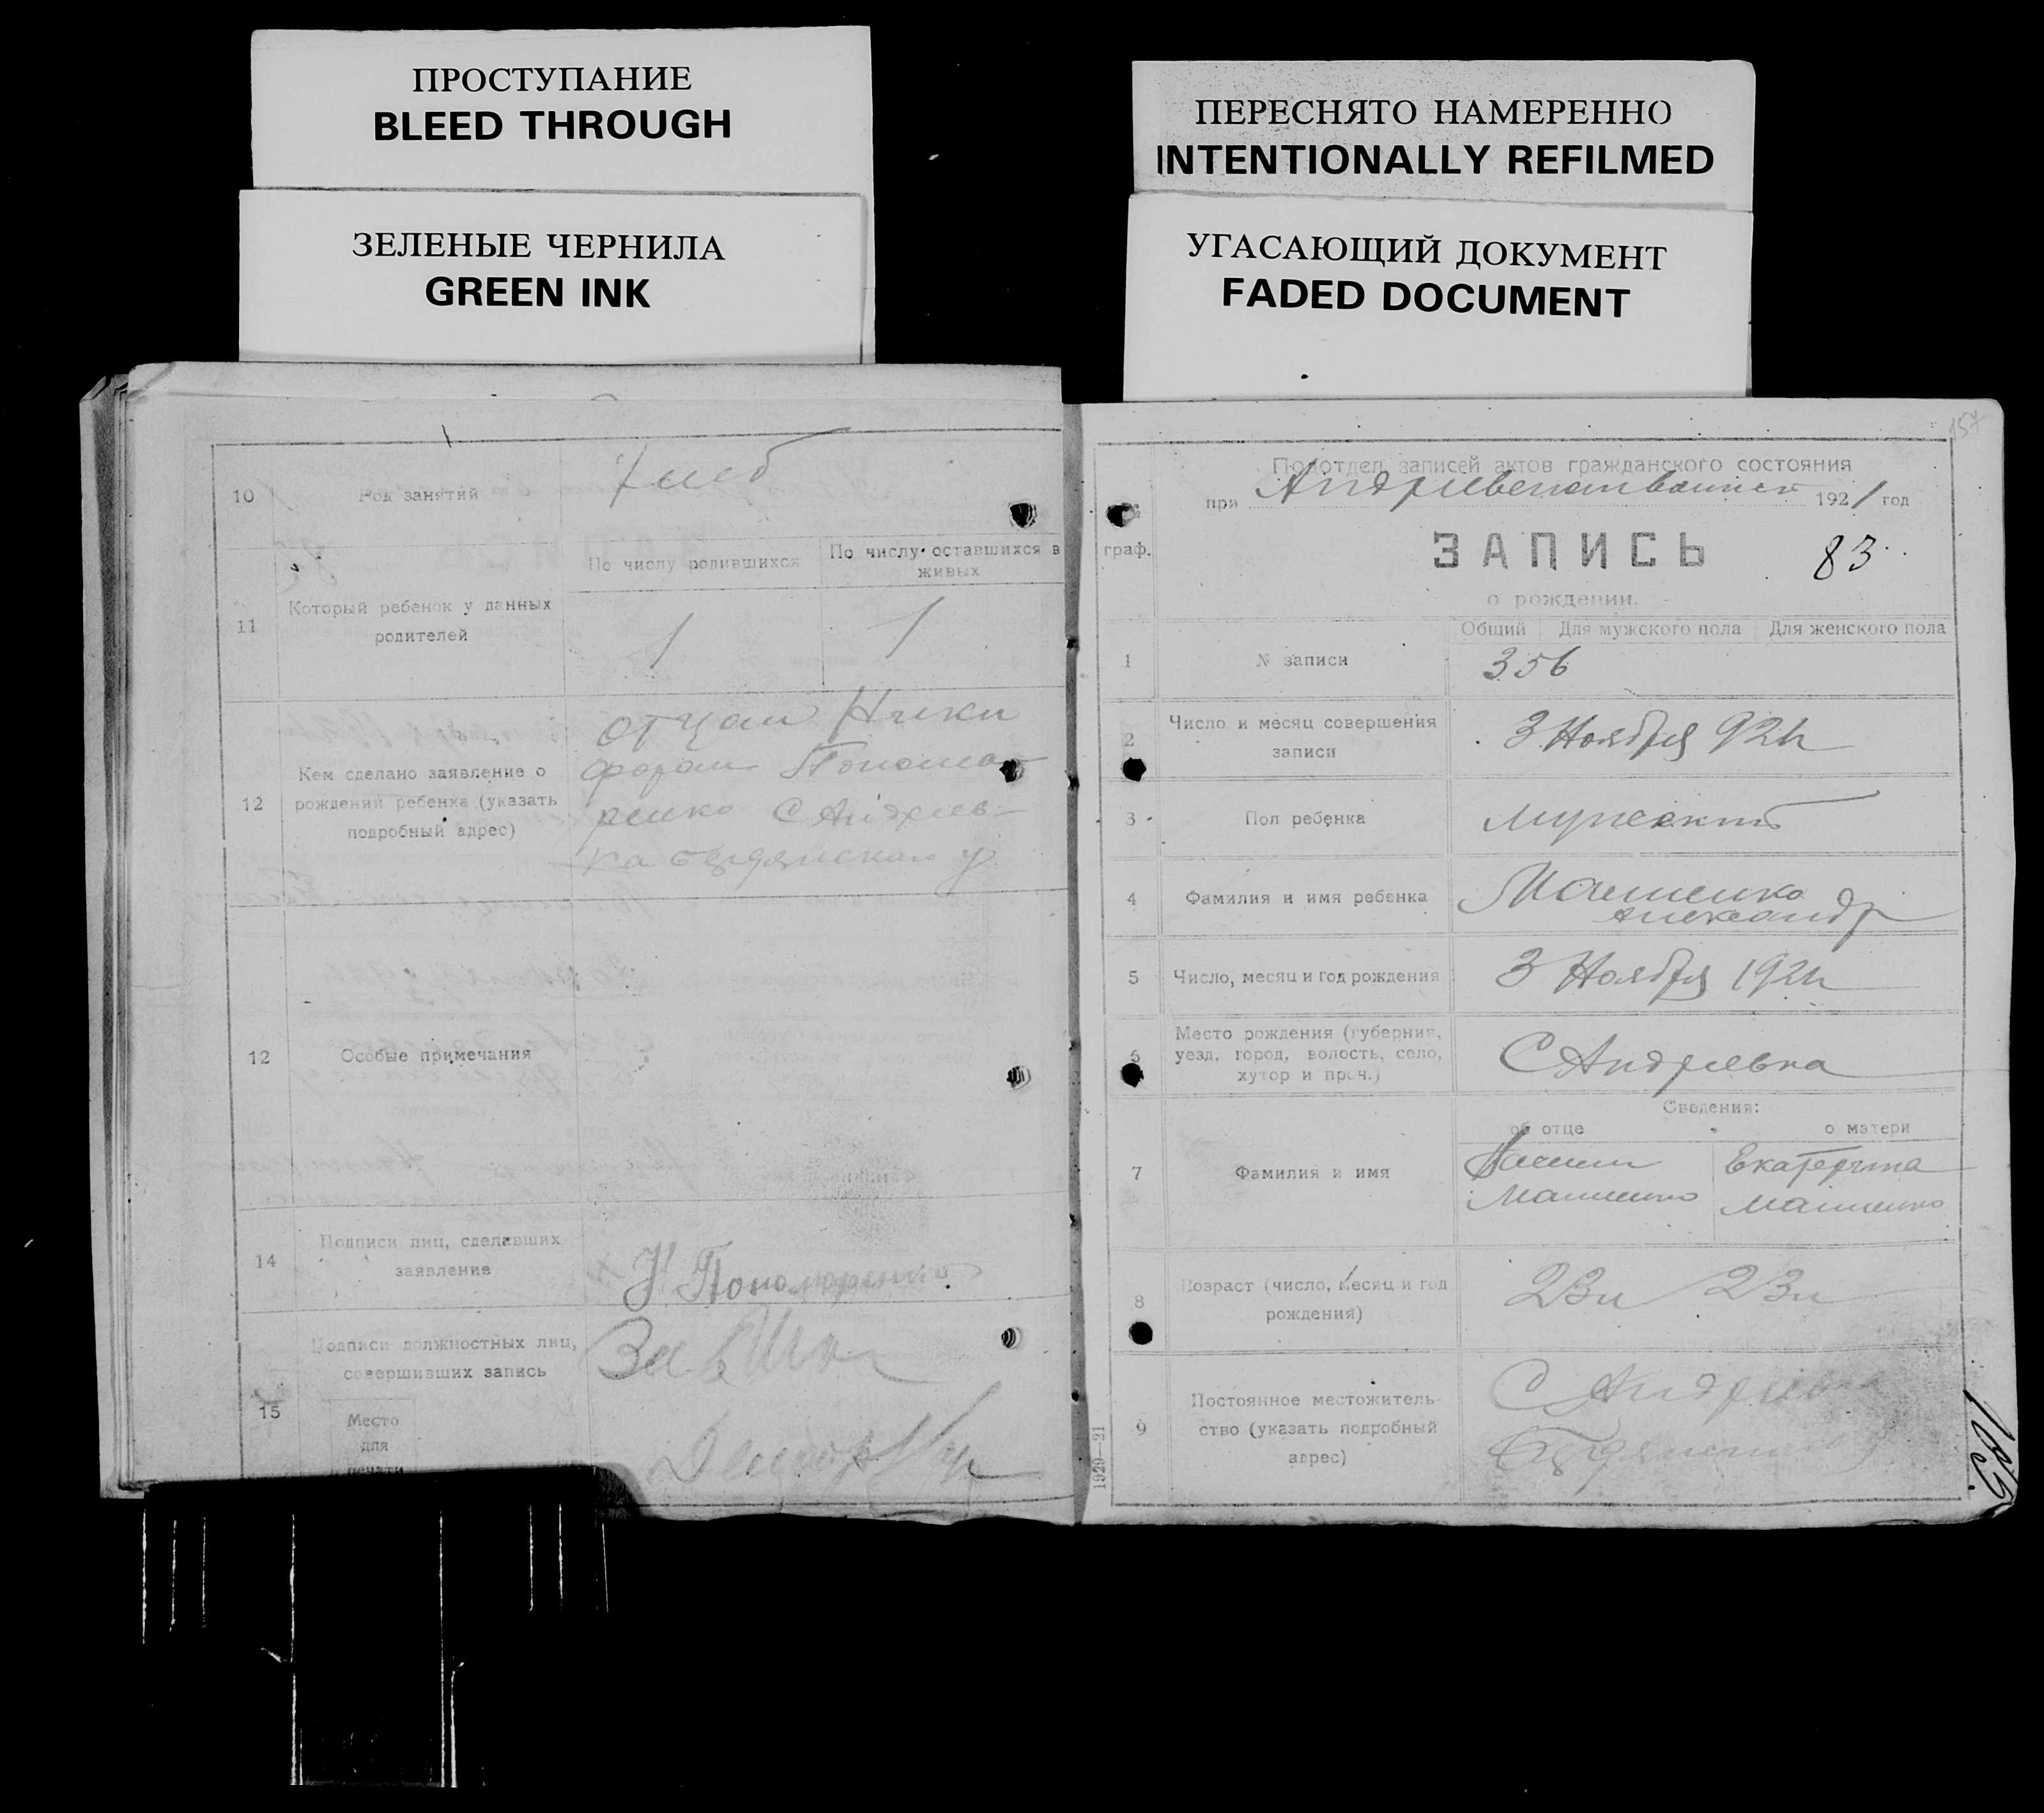 ПРОСТУПАНИЕ
BLEED THROUGH
ЗЕЛЕНЫЕ ЧЕРНИЛА
GREEN INK
ПЕРЕСНЯТО НАМЕРЕННО
INTENTIONALLY REFILMED
УГАСАЮЩИЙ ДОКУМЕНТ
FADED DOCUMENT
10
Род занятий
11
Который ребенок у данных
родителей
По числу родившихся
По числу оставшихся в
живых
1
1
12
Кем сделано заявление о
рождении ребенка (указать
подробный адрес)
отцом Ники
фором Понома
ренко С Андреев-
ка Бердянскаго у.
12
Особые примечания
14
Подписи лиц, сделавших
заявление
Н Пономаренко
15
Подписи должностных лиц,
совершивших запись
Место
для
печати
157
Подотдел записей актов гражданского состояния
при
1921 год
граф.
ЗАПИСЬ
83
о рождении.
Общий
Для мужского пола
Для женского пола
1
№ записи
356
2
Число и месяц совершения
записи
3 Ноября 921г
3
Пол ребенка
мужскит
4
Фамилия и имя ребенка
Машенко
Александр
5
Число, месяц и год рождения
3 Ноября 1921г
6
Место рождения (губерния,
уезд, город, волость, село,
хутор и проч.)
С Андреевка
Сведения:
об отце
о матери
7
Фамилия и имя
Машенко
Екатерина
Машенко
8
Возраст (число, месяц и год
рождения)
23л
23л
9
Постоянное местожитель-
ство (указать подробный
адрес)
С Андреевка
1929—21